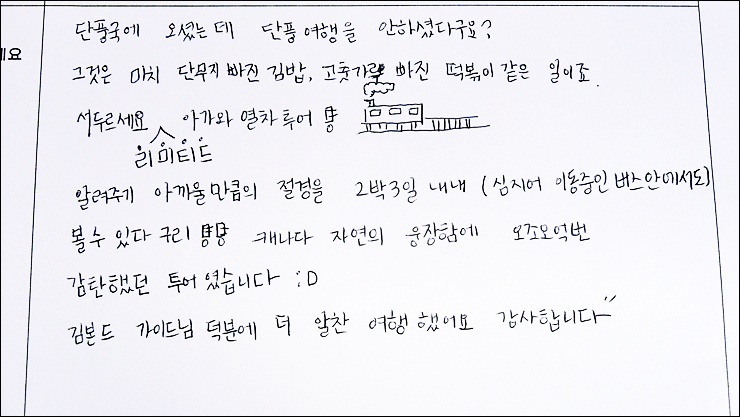 단풍국에 오셨는데 단풍여행을 안하셨다구요?
그것은 마치 단무지 빠진 김밥, 고춧가루 빠진 떡볶이 같은 일이죠.
서두르세요 아가와 열차 투어
리미티드
알려주기 아까울만큼의 절경을 2박3일 내내 (심지어 이동중인 버스안에서도)
볼 수 있다구리 캐나다 자연의 웅장함에 오조오억번
감탄했던 투어였습니다 :D
김본드 가이드님 덕분에 더 알찬 여행했어요 감사합니다